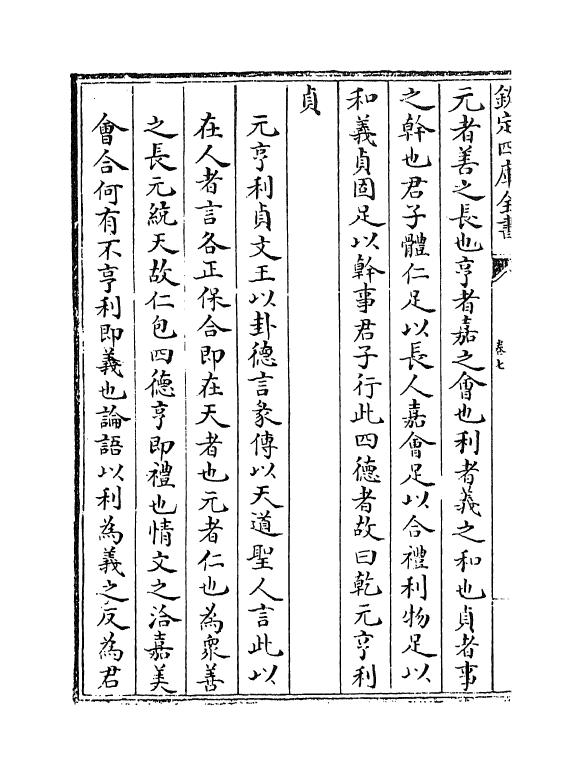 欽定四庫全書
卷七
元者善之長也亨者嘉之會也利者義之和也貞者事
之幹也君子體仁足以長人嘉會足以合禮利物足以
和義貞固足以幹事君子行此四德者故曰乾元亨利
貞
元亨利貞文王以卦德言彖傳以天道聖人言此以
在人者言各正保合即在天者也元者仁也為衆善
之長元統天故仁包四德亨即禮也情文之洽嘉美
會合何有不亨利即義也論語以利為義之反為君